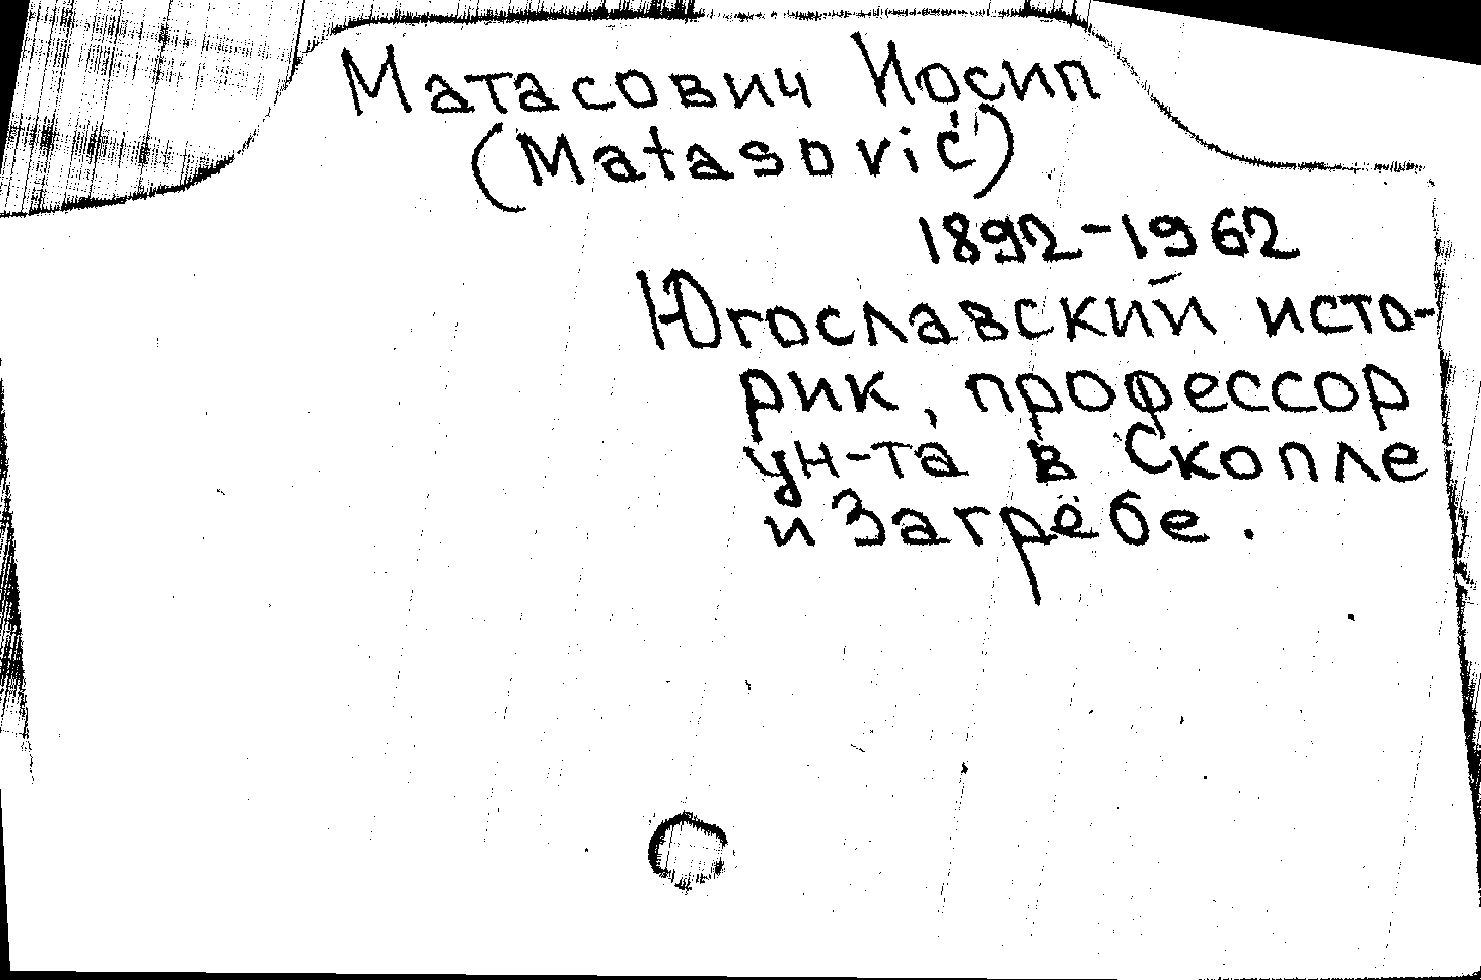 Матасович Иосип
(Matasović)
1892-1962
Югославский исто-
рик, профессор
ун-та в Скопле
и Загребе.